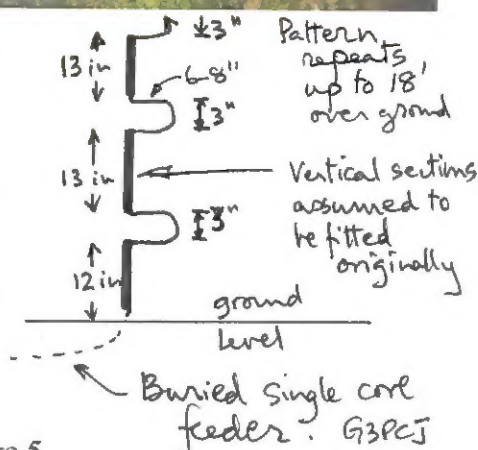 3"
Pattern
repeats
up to 18'
over ground
13 in
6-8"
3"
13 in
Vertical sections
assumed to
be fitted
originally
3"
12 in
ground
level
Buried single core
feeder. G3PCJ